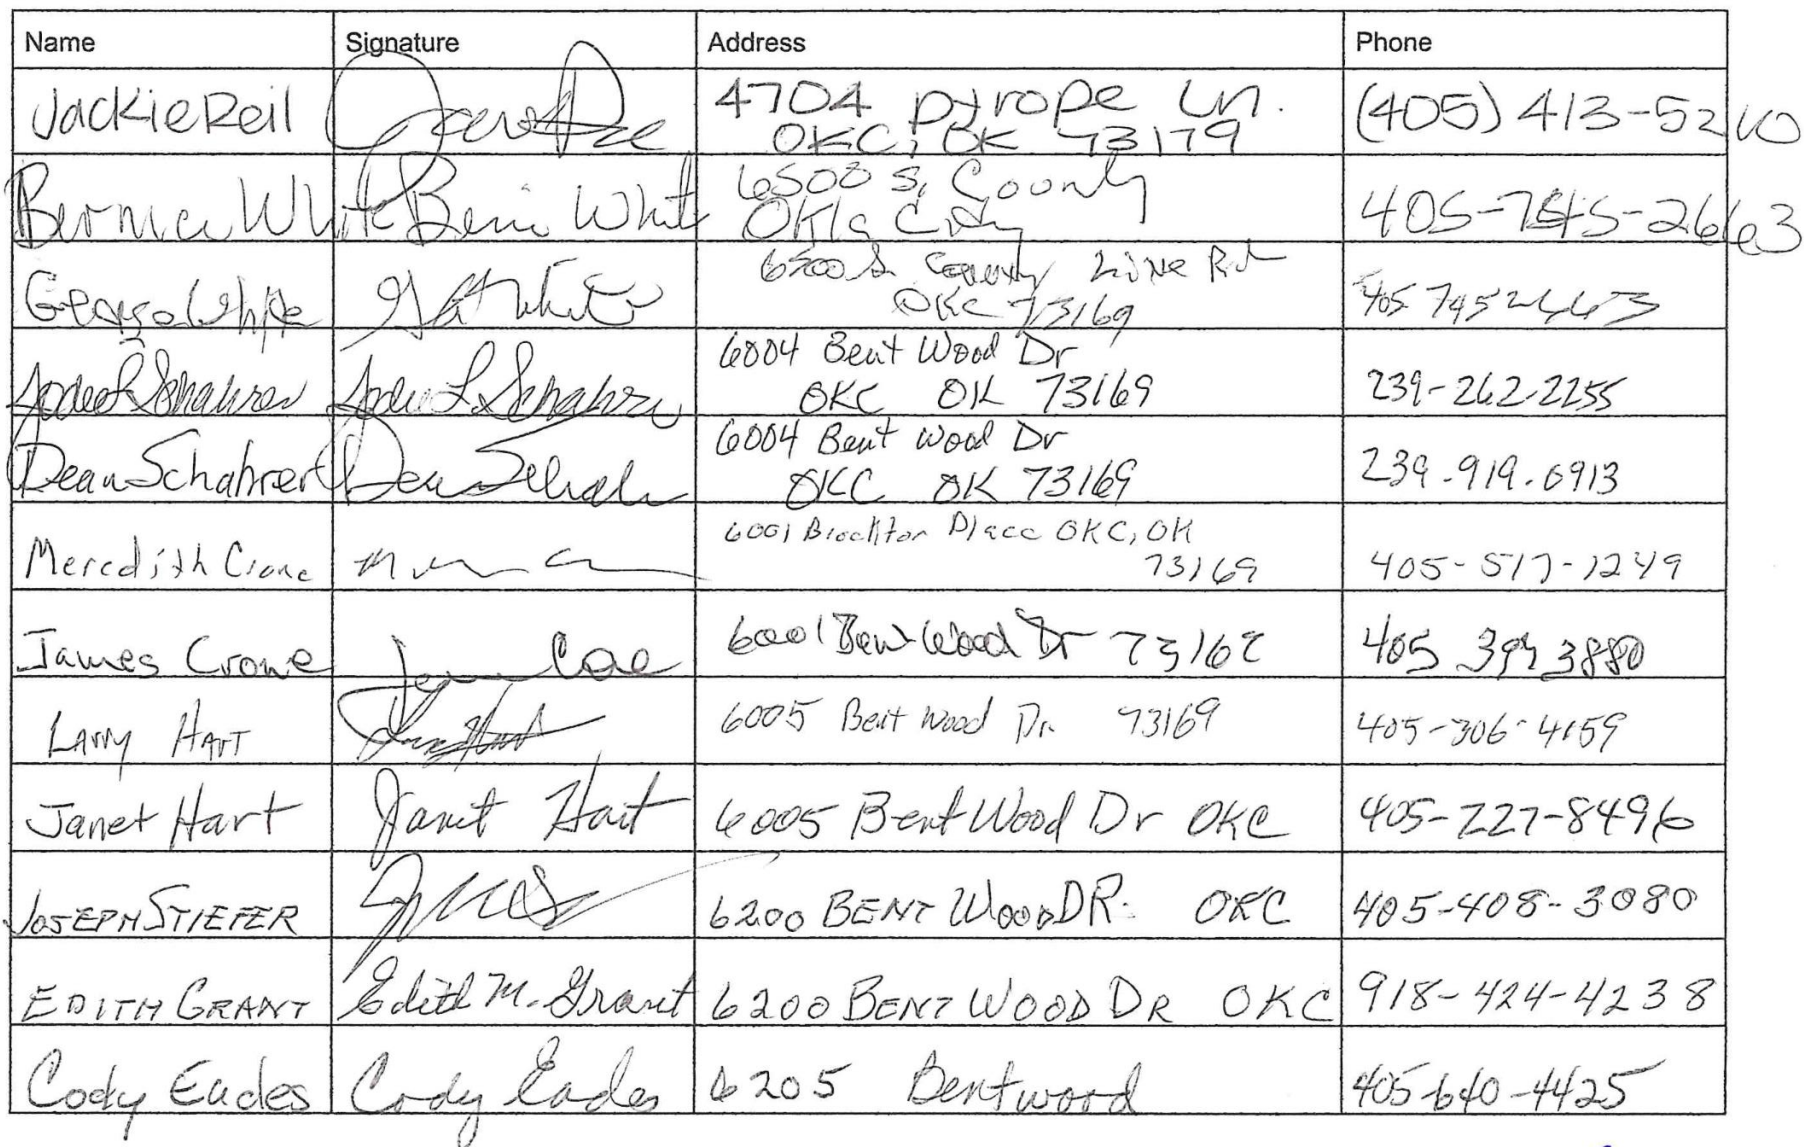 Name Signature Address Phone
Jackie Reil 4704 pyrope Ln. (405) 413-5210
OKC, OK 73179
Bernice White Berni White 6500 S. County 405-745-2663
Okla City
George White White 6500 S. County Line Rd 405 745 2663
OKC 73169
Jodee L Schahrer Jodee L Schahrer 6004 Bent Wood Dr 239-262-2255
OKC OK 73169
Dean Schahrer Dean 6004 Bent Wood Dr 239-919-6913
OKC OK 73169
Meredith Crone 6001 Brockton Place OKC, OK 405-517-1249
73169
James Crone 6001 Bent Wood Dr 405 3880
Larry Hart 6005 Bent Wood Dr. 73169 405-306-4159
Janet Hart Janet Hart 6005 Bent Wood Dr OKC 405-227-8496
JOSEPH STIEFER 6200 BENT WOOD DR. OKC 405-408-3080
EDITH GRANT Edith M. Grant 6200 BENT WOOD DR OKC 918-424-4238
Cody Eades Cody Eades 6205 Bentwood 405-640-4425